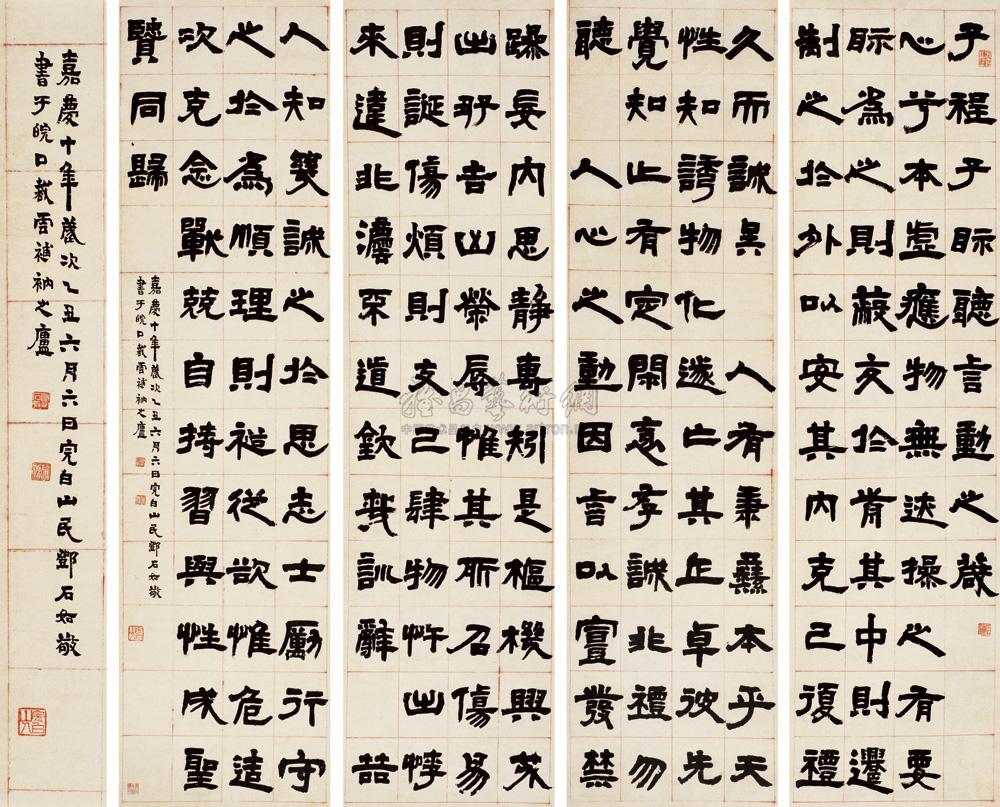 子程子眎聽言動之箴
心兮本虛應物無迹操之有要
眎為之則蔽交於前其中則遷
制之於外以安其內克己復禮
久而誠矣 人有秉彝本乎天
性知誘物化遂亡其正卓彼先
覺知止有定閑意存誠非禮勿
聽 人心之動因言以宣發禁
躁妄內思靜專矧是樞機興戎
出好吉凶榮辱惟其所召傷易
則誕傷煩則支己肆物忤出悖
來違非灋不道欽哉訓辭 喆
人知幾誠之於思志士勵行守
之於為順理則裕從欲惟危造
次克念戰兢自持習與性成聖
賢同歸
嘉慶十年歲次乙丑六月六日完白山民鄧石如敬
書于皖口裁雲補衲之廬
嘉慶十年歲次乙丑六月六日完白山民鄧石如敬
書于皖口裁雲補衲之廬
雅昌藝術網